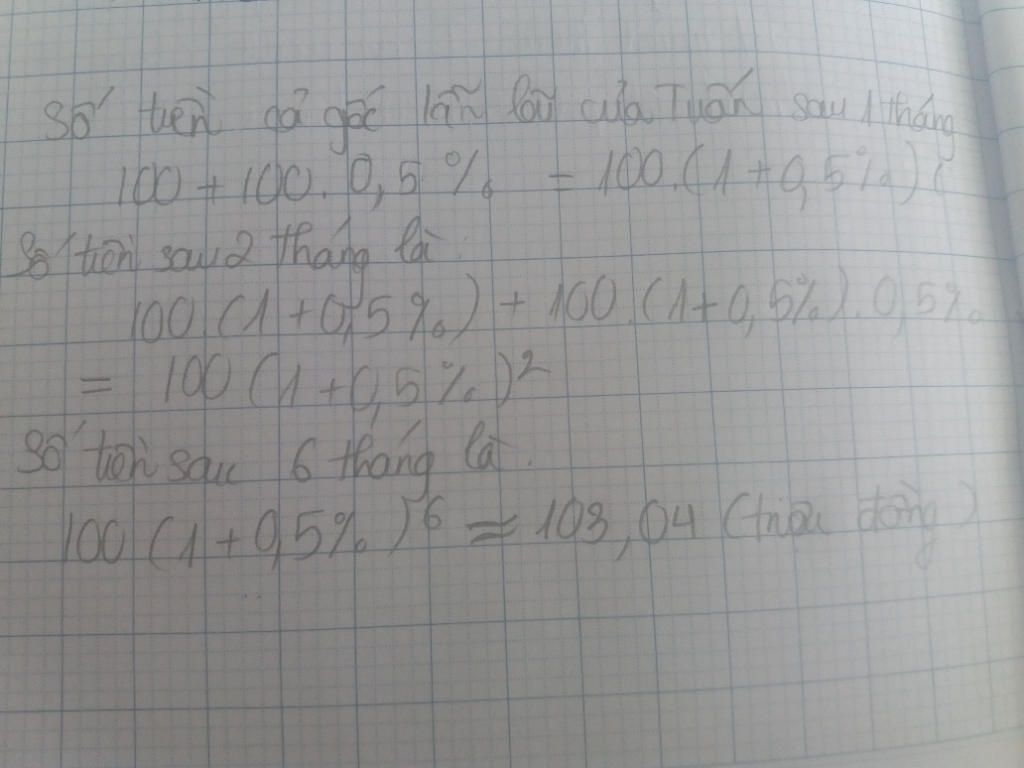 Số tiền cả gốc lẫn lãi của Tuấn sau 1 tháng
100 + 100. 0,5% = 100.(1+0,5%)
Số tiền sau 2 tháng là:
100.(1+0,5%) + 100.(1+0,5%).0,5%
= 100(1+0,5%)²
Số tiền sau 6 tháng là.
100(1+0,5%)⁶ ≈ 103,04 (triệu đồng)